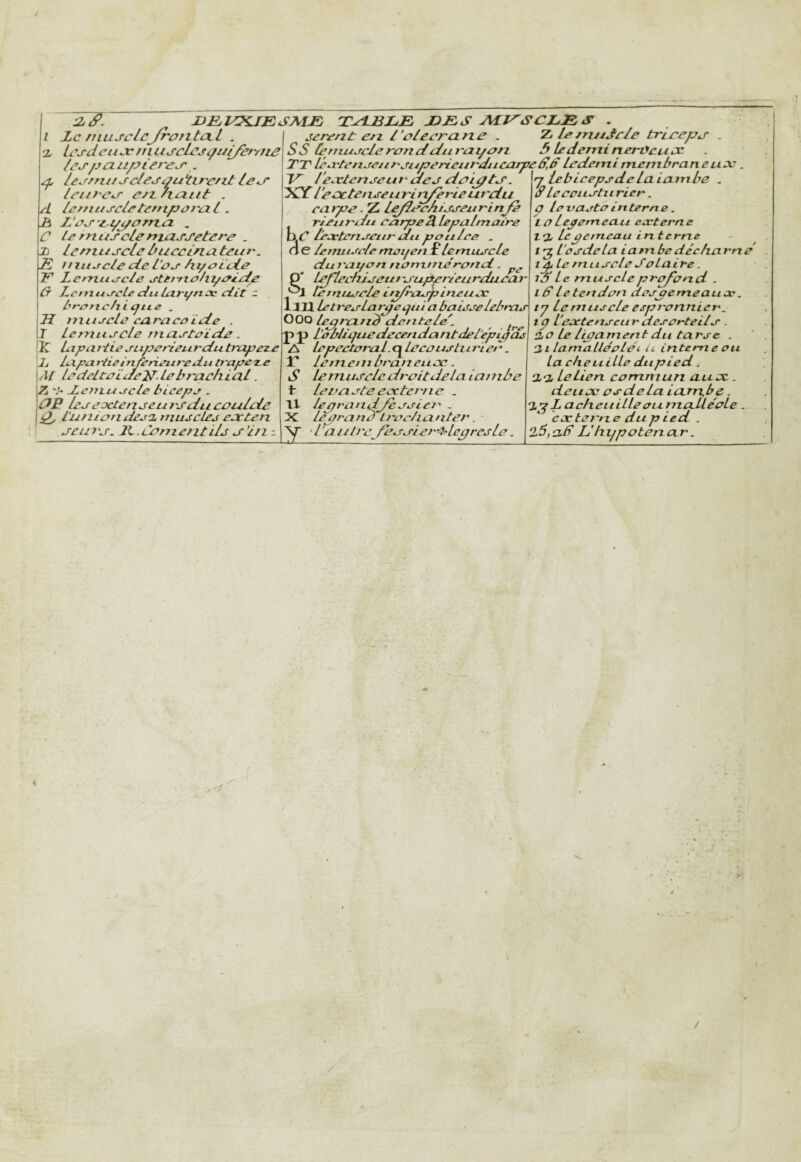 28. DEVXIESME TABLE DES MVSCLES .
1 Le muscle frontal .
2 les deux muscles qui ferme
les paupieres .
4 les muscles qu'tirent les
leures en haut .
A le muscle temporal .
B L'os zygoma .
C le muscle massetere .
D le muscle buccinateur.
E muscle de l'os hyoide
F Le muscle sternohyoide
G Le muscle du larynx dit =
bronchique .
H muscle caracoide .
I le muscle mastoide .
K La partie superieur du trapeze
L La partie inferieure du trapeze
M le deltoide N. le brachial .
Z Le muscle biceps .
OP les extenseurs du coulde
Q L'union des 2 muscles exten
seurs. R. Coment ils s'in =
serent en l'olecrane .
SS le muscle rond du rayon
TT le extenseur superieur du carpe
V l'extenseur des doigts .
XY l'extenseur inferieur du
carpe . Z le flechisseur infe
rieur du carpe & le palmaire
bC l'extenseur du poulce .
de le muscle moyen f le muscle
du rayon nommé rond .
g le flechisseur superieur du car
pe
h le muscle infraspineux
llll le tres large qui abaisse le bras
OOO le grand dentelé.
pp l'oblique decendant de l'epigas
tre
le pectoral . q le cousturier .
r le membraneux .
S le muscle droit de la iambe
t le vaste externe .
u le grand fessier .
X le grand trochanter .
y l'autre fessier & le gresle .
Z le muscle triceps .
5 le demi nerveux .
6,6 le demi membraneux .
7 le biceps de la iambe .
8 le cousturier .
9 le vasto interne .
10 le gemeau externe
12 le gemeau interne
13 l'os de la iambe décharné .
14 le muscle solaire .
15 le muscle profond .
16 le tendon des gemeaux .
17 le muscle espronnier .
19 l'extenseur des orteils .
20 le ligament du tarse .
21 la malléole interne ou
la cheuille du pied .
22 le lien commun aux .
deux os de la iambe .
23 La cheuille ou malléole .
externe du pied .
25, 26 L'hypotenar .